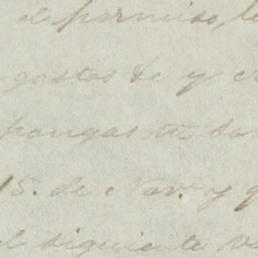 el permiso, l
gastos de y
pongas tu
15. de Nov.e y
el siguiente